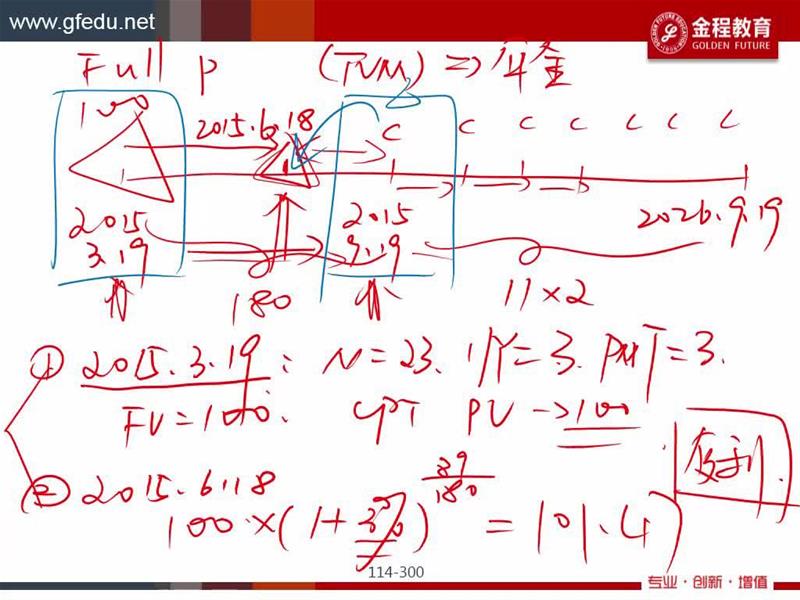 www.gfedu.net
金程教育
GOLDEN FUTURE
Full P (TVM) => 年金
100
2015.6.18
C C C C C C C
2015
3.19
2015
9.19
2026.9.19
180
11×2
① 2015.3.19: N=23. I/Y=3. PMT=3.
FV=100. CPT PV → 100
② 2015.6.18
100×(1+3%) = 101.4
复利
114-300
专业·创新·增值